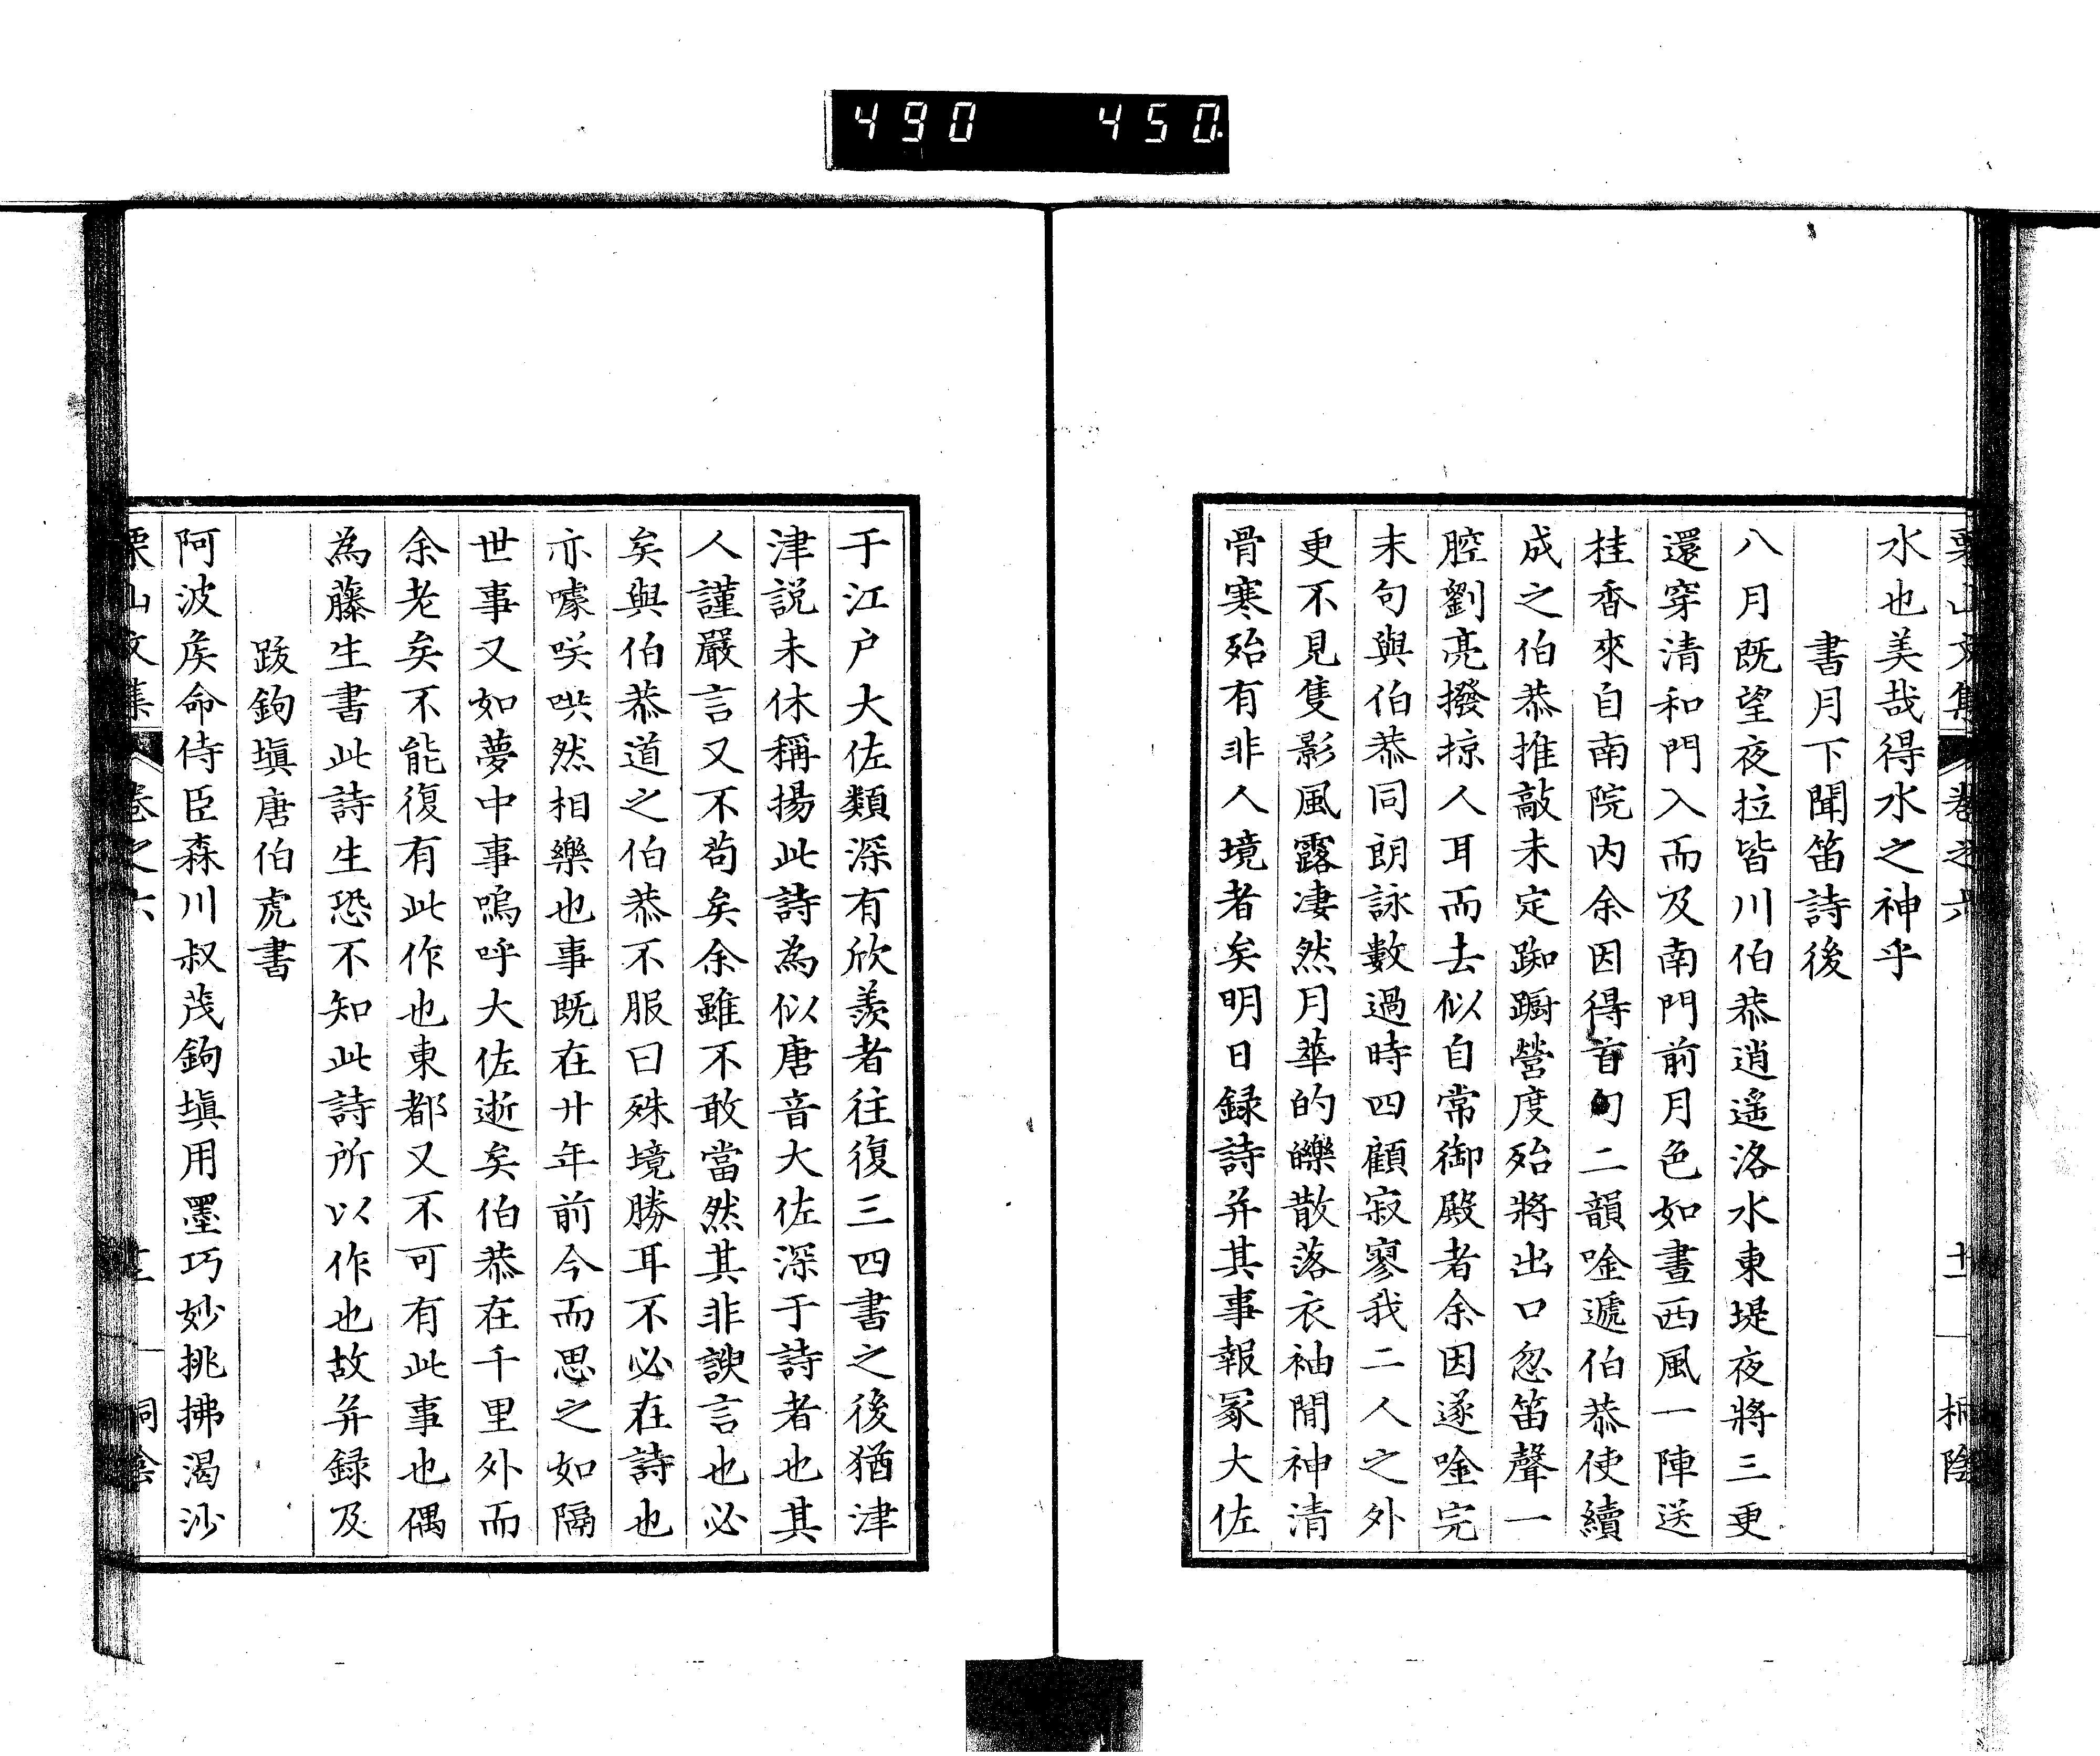 490 450.
栗山文集 卷之六 十一 桐陰
水也美哉得水之神乎
書月下聞笛詩後
八月既望夜拉皆川伯恭逍遙洛水東堤夜將三更
還穿清和門入而及南門前月色如晝西風一陣送
桂香來自南院内余因得首句二韻唫遞伯恭使續
成之伯恭推敲未定踟蹰營度殆將出口忽笛聲一
腔劉亮撥掠人耳而去似自常御殿者余因遂唫完
末句與伯恭同朗詠數過時四顧寂寥我二人之外
更不見隻影風露凄然月華的皪散落衣袖間神清
骨寒殆有非人境者矣明日録詩并其事報冢大佐
于江户大佐類深有欣羨者往復三四書之後猶津
津説未休稱揚此詩為似唐音大佐深于詩者也其
人謹嚴言又不苟矣余雖不敢當然其非諛言也必
矣與伯恭道之伯恭不服曰殊境勝耳不必在詩也
亦噱咲哄然相樂也事既在廿年前今而思之如隔
世事又如夢中事嗚呼大佐逝矣伯恭在千里外而
余老矣不能復有此作也東都又不可有此事也偶
為藤生書此詩生恐不知此詩所以作也故并録及
跋鉤塡唐伯虎書
阿波矦命侍臣森川叔茂鉤塡用墨巧妙挑拂渴沙
栗山文集 卷之六 桐陰